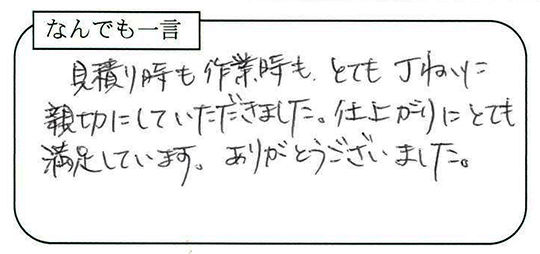 なんでも一言
見積り時も作業時も、とても丁ねいに
親切にしていただきました。仕上がりにとても
満足しています。ありがとうございました。